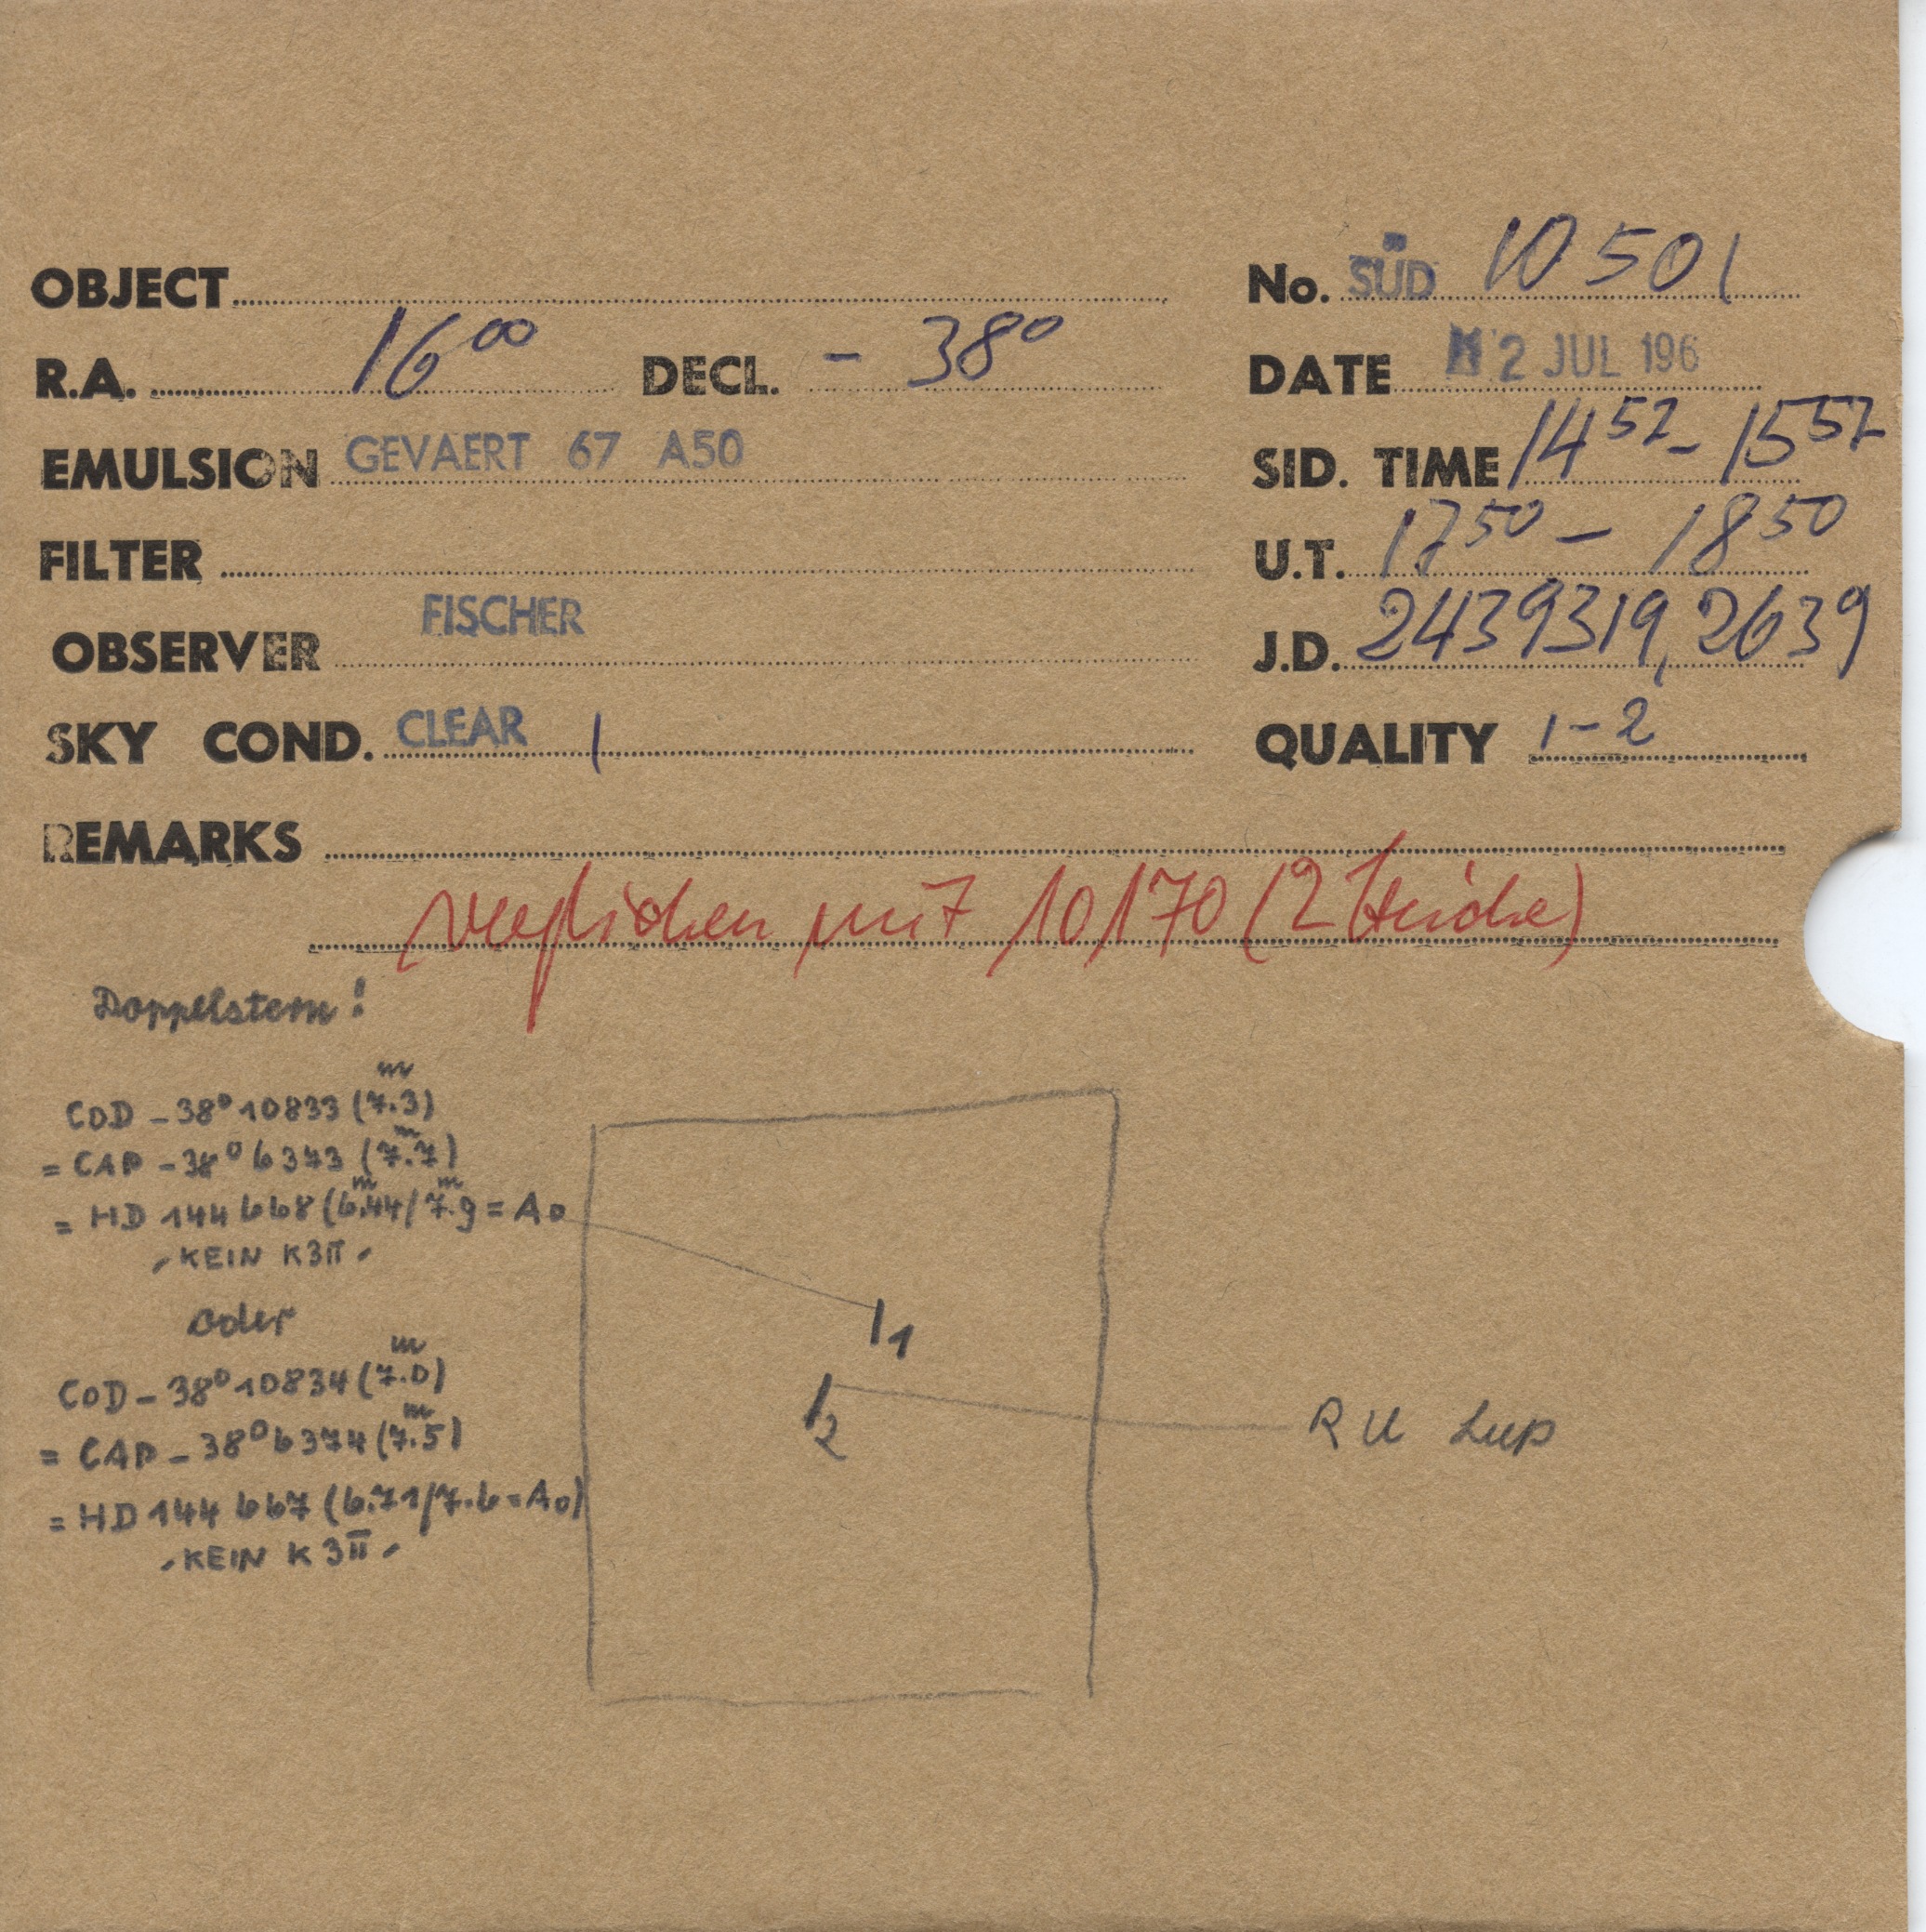 OBJECT
No. SÜD 10 501
R.A. 16⁰⁰ DECL. - 38⁰
DATE 2 JUL 196
EMULSION GEVAERT 67 A50
SID. TIME 14⁵² - 15⁵²
FILTER
U.T. 17⁵⁰ - 18⁵⁰
OBSERVER FISCHER
J.D. 2439319,2639
SKY COND. CLEAR 1
QUALITY 1-2
REMARKS
verglichen mit 10170 (2 Striche)
Doppelstern!
COD - 38⁰ 10833 (7ᵐ.3)
= CAP - 38⁰ 6373 (7ᵐ.7)
= HD 144 668 (6ᵐ.44/7ᵐ.9 = A0
- KEIN K3II -
oder
COD - 38⁰ 10834 (7ᵐ.0)
= CAP - 38⁰ 6374 (7ᵐ.5)
= HD 144 667 (6.71/7.6 = A0)
- KEIN K3II -
1
2
RU Lup